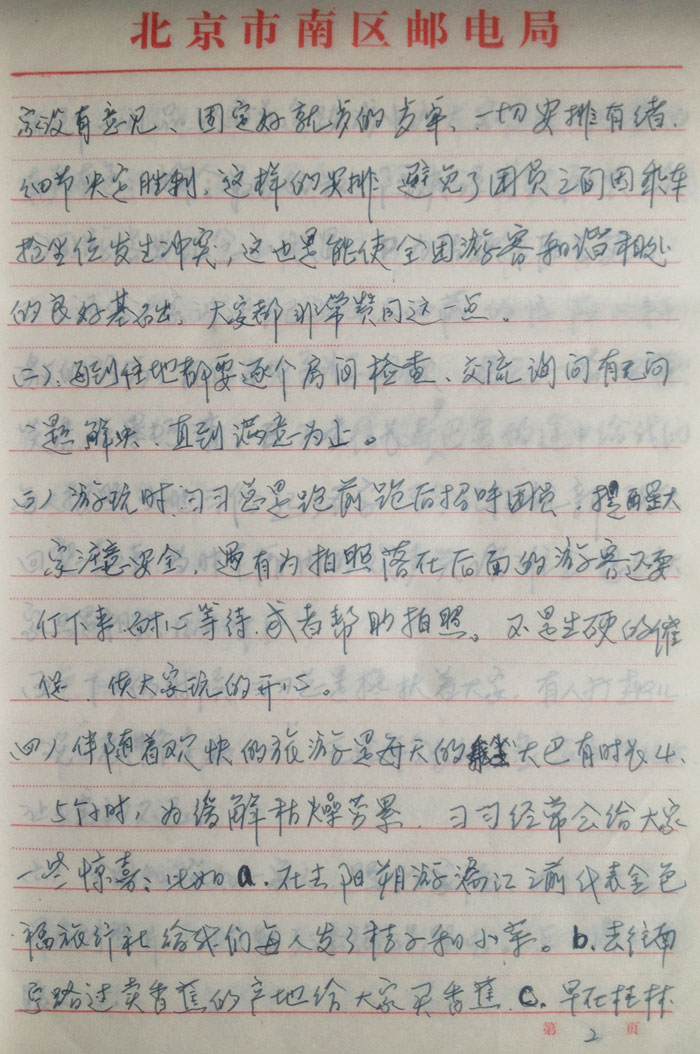 北京市南区邮电局
家没有意见、固定好就步的步率、一切安排有绪、
细节决定胜利，这样的安排 避免了团员之间因乘车
抢坐位发生冲突，这也是能使全团游客和谐相处
的良好基础、大家都非常赞同这一点。
(二)、每到住地都要逐个房间检查、交流询问有无问
题解决、直到满意为止。
(三)游玩时习习总是跑前跑后招呼团员，提醒大
家注意安全，遇有为拍照落在后面的游客还要
停下来耐心等待.或者帮助拍照。不是生硬的催
促 使大家玩的开心。
(四)伴随着欢快的旅游是每天的乘坐大巴有时长4、
5个小时，为缓解枯燥劳累，习习经常会给大家
一些惊喜：比如a.在去阳朔游漓江之前代表金色
福旅行社给我们每人发了桔子和小菜。b.去往南
宁路过卖香蕉的产地给大家买香蕉.C.早在桂林
第 2 页